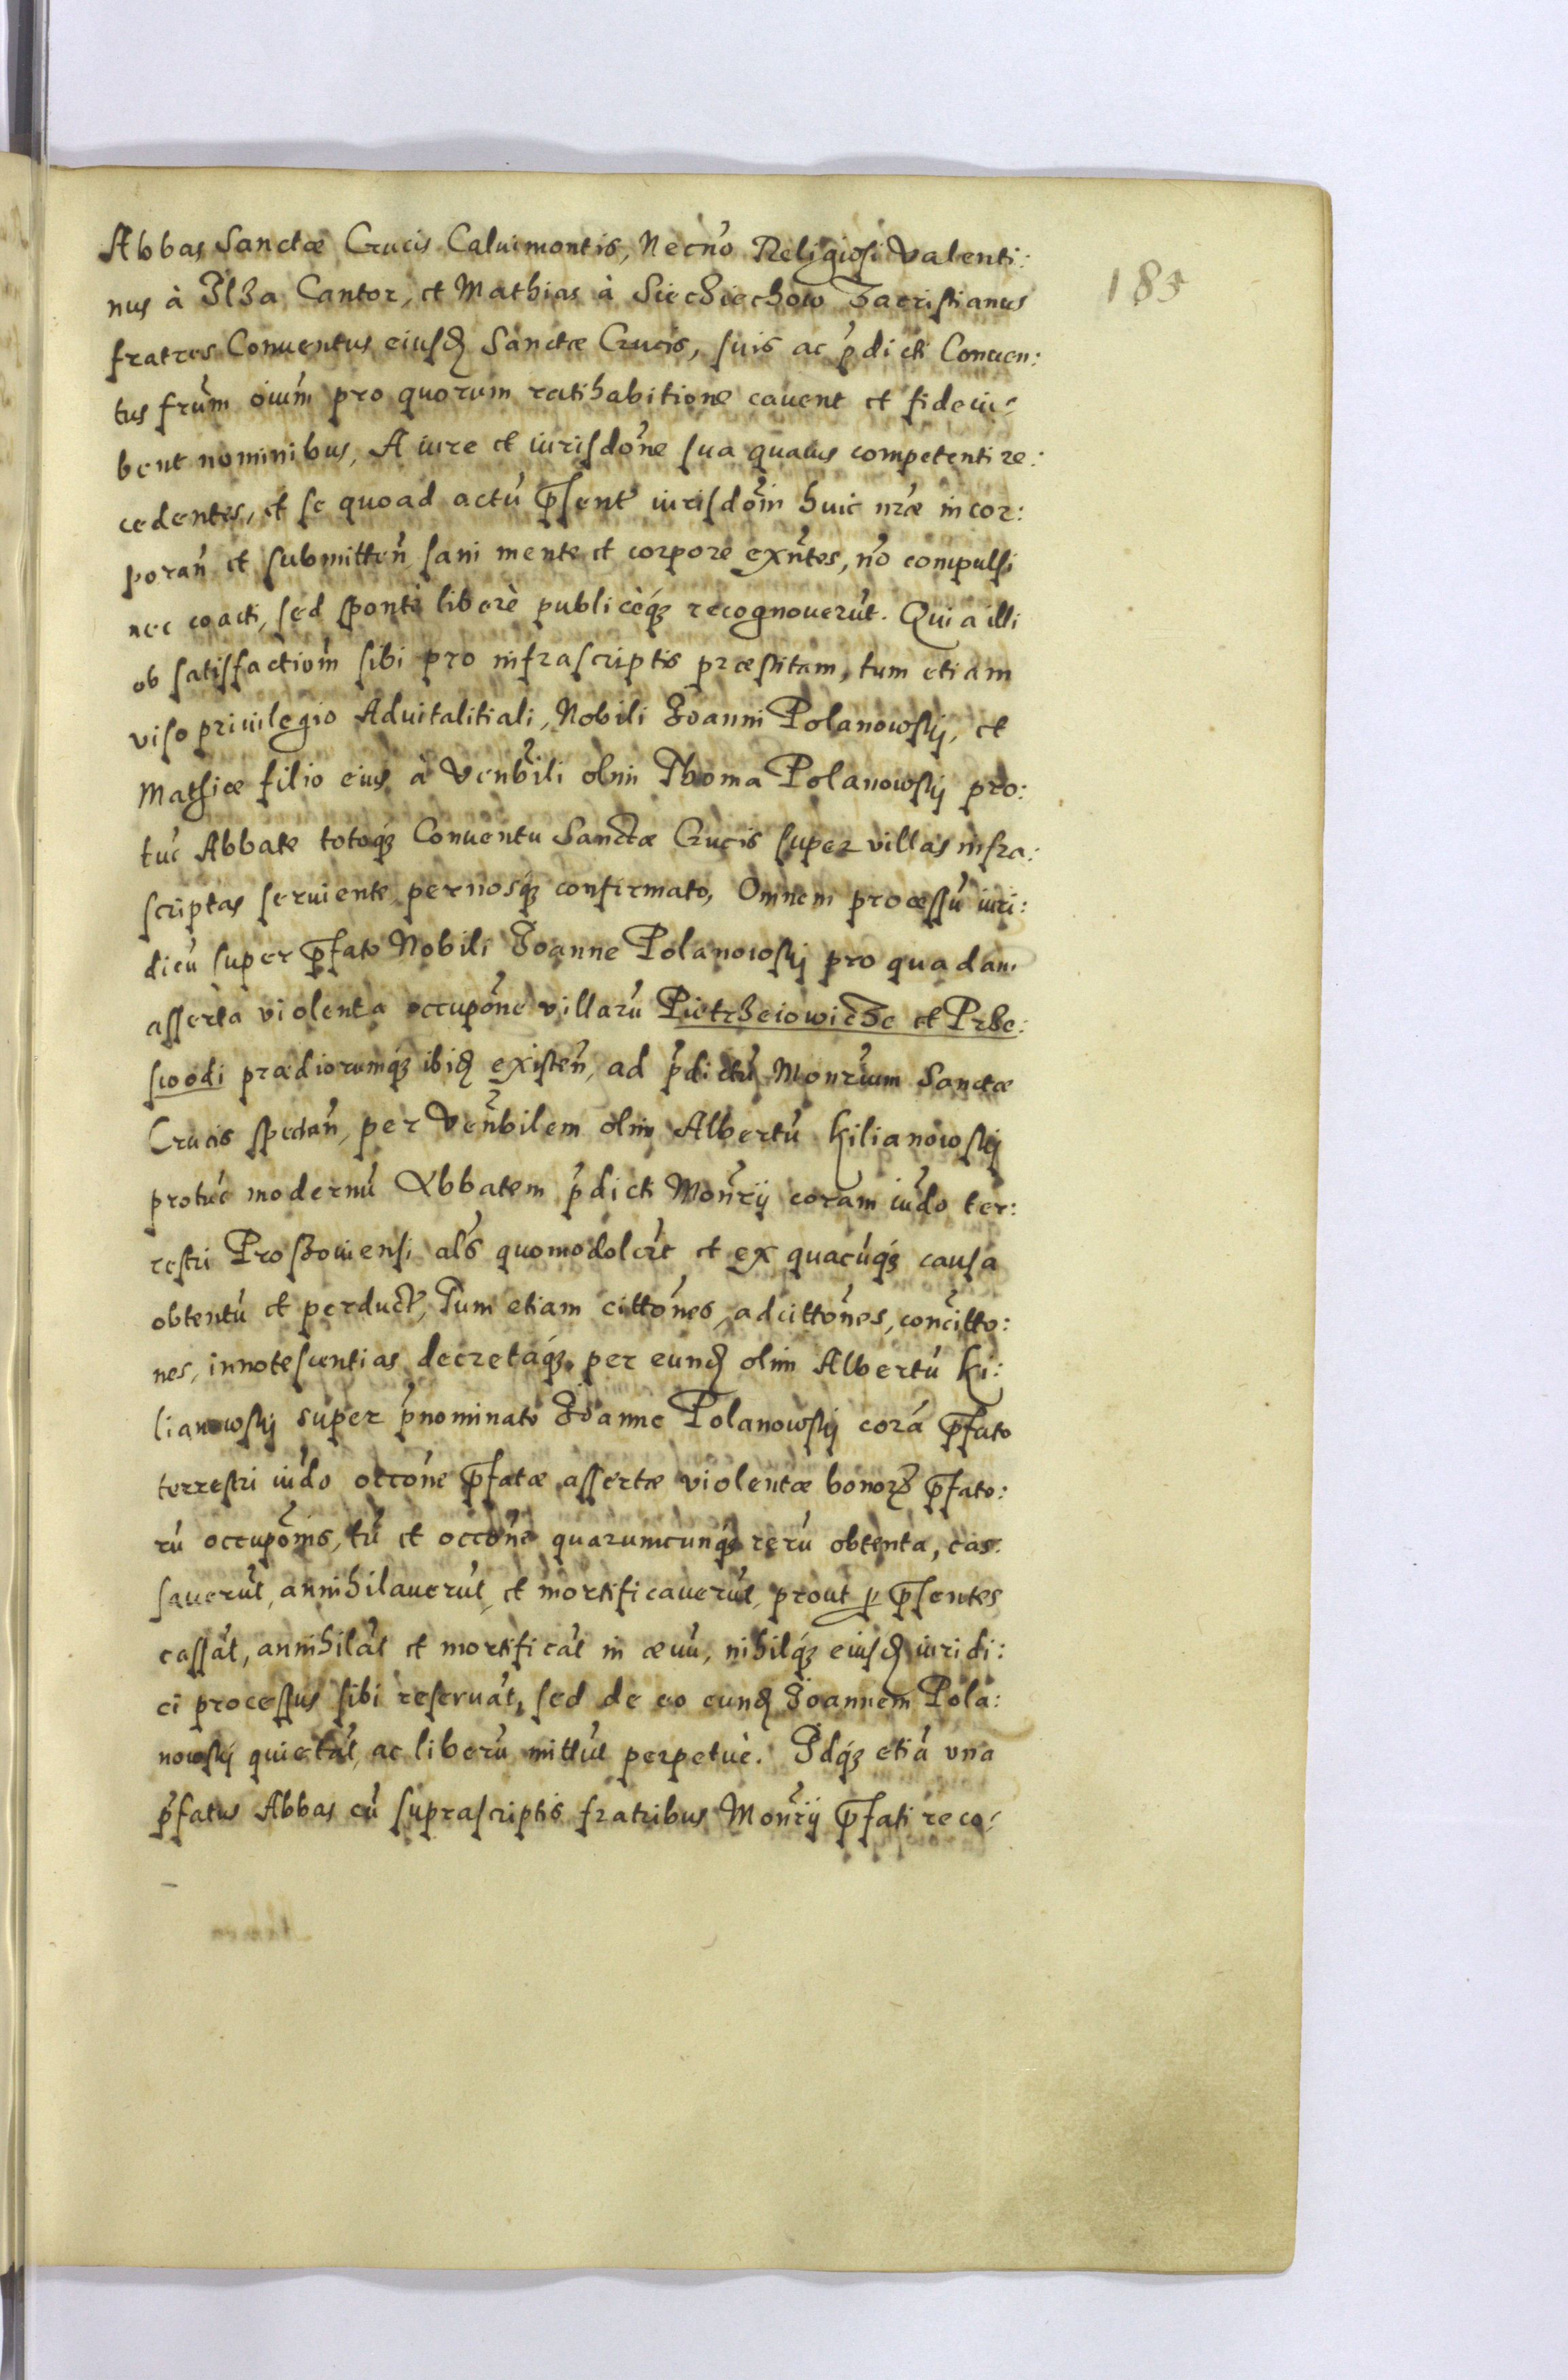 Abbas Sanctæ Crucis Caluimontis, Necnō Religiosi Valenti:
nus à Ilza Cantor, et Mathias à Sieciechow Sacristianus
fratres Conuentus eiusdē Sanctæ Crucis, suis ac p̄dicti Conuen:
tus frūm oīum pro quorum ratihabitione cauent et fideiu:
bent nominibus, A iure et iurisdōne sua quauis competenti re:
cedentes, et se quoad actū p̄sent iurisdōm huic nr̄æ incor:
porań et submitteń sani mente et corpore exn̄tes, nō compulsi
nec coacti, sed sponte liberè publicèq́ꝫ recognouerūt. Quia illi
ob satisfactiōm sibi pro infrascriptis præstitam, tum etiam
viso priuilegio Aduitalitiali, Nobili Joanni Polanowskij, et
Mathiæ filio eius à Ven̄bili olim Thoma Polanowskij pro:
tūc Abbate totoq́ꝫ Conuentu Sanctæ Crucis super villas infra:
scriptas seruiente, pernosq́ꝫ confirmato, Omnem processū iuri:
dicū super p̄fato Nobili Joanne Polanowskij pro quadam
asserta violenta occupōne villarū Pietrzeiowicze et Prze:
swodi prædiorumq́ꝫ ibidē existeń, ad p̄dictū Mon̄rium Sanctæ
Crucis spectań, per Ven̄bilem olim Albertū Kilianowskij
protūc modernū Abbatem p̄dicti Mon̄rij coram iūdo ter:
restri Proszouiensi al̄s quomodolibt et ex quacūq́ꝫ causa
obtentū et perduct, Tum etiam cittōnes, adcittōnes, concitto:
nes, innotescentias decretaq́ꝫ per eundē olim Albertū Ki:
lianowskij super p̄nominato Joanne Polanowskij corā p̄fato
terrestri iūdo occōne p̄fatæ assertæ violentæ bonorꝫ p̄fato:
rū occupōnis, tū et occōne quarumcunq́ꝫ rerū obtenta, cas:
sauerūt, annihilauerūt, et mortificauerūt, prout ꝑ p̄sentes
cassāt, annihilāt et mortificāt in æuū, nihilq́ꝫ eiusdē iuridi:
ci processus sibi reseruāt, sed de eo eundē Joannem Pola:
nowskij quietāt, ac liberū mittūt perpetuè. Idq́ꝫ etiā vna
p̄fatus Abbas cū suprascriptis fratribus Mon̄rij p̄fati reco:
183